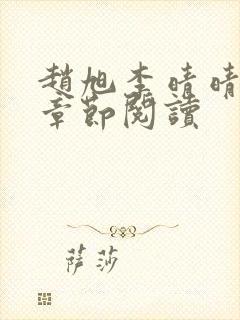 趙旭李晴晴
章節閱讀
萨莎